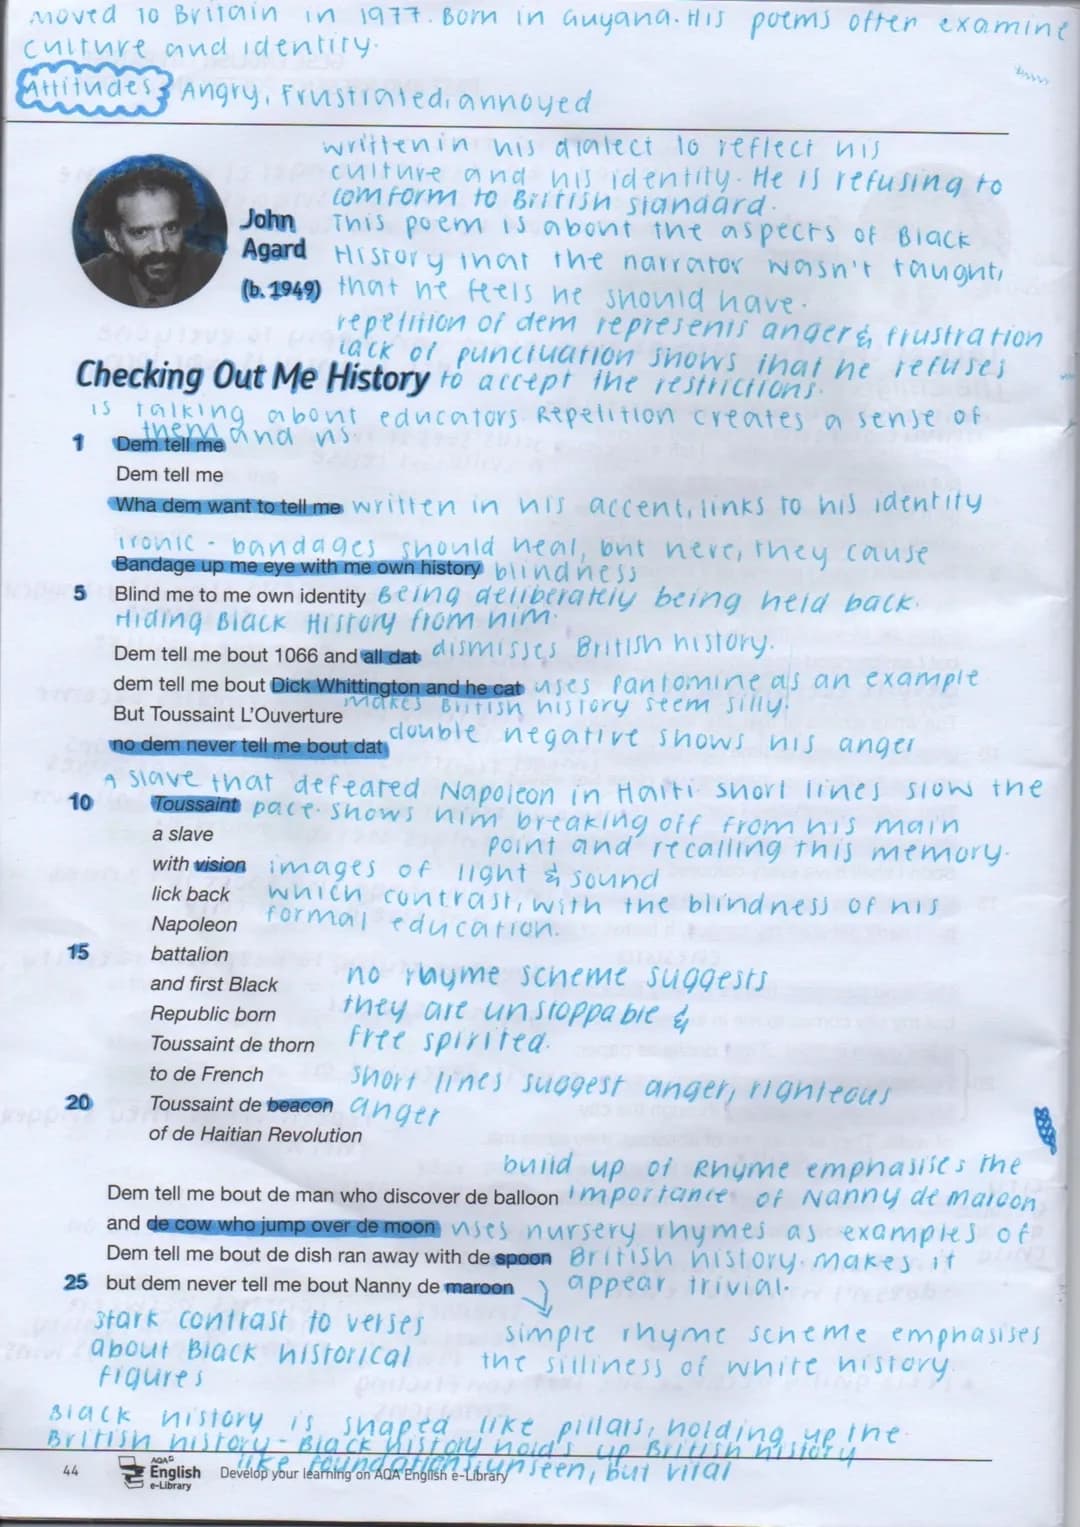 moved to Britain in 1977. Born in Guyana. His poems often examine
culture and identity.
Attitudes Angry, Frustrated, annoyed
written in his dialect to reflect his
culture and his identity. He is refusing to
comform to British standard.
John
Agard
(b. 1949)
This poem is about the aspects of Black
History that the narrator wasn't taught,
that he feels he should have.
repetition of dem represents anger & frustration
lack of punctuation shows that he refuses
Checking Out Me History to accept the restrictions.
is talking about educators. Repetition creates a sense of
them and us
1 Dem tell me
Dem tell me
Wha dem want to tell me written in his accent, links to his identity
ironic - bandages should heal, but here, they cause
Bandage up me eye with me own history blindness
5 Blind me to me own identity Being deliberately being held back.
Hiding Black History from him.
Dem tell me bout 1066 and all dat dismisses British history.
dem tell me bout Dick Whittington and he cat uses Pantomine as an example
makes British history seem silly.
But Toussaint L'Ouverture
double negative shows his anger
no dem never tell me bout dat
A slave that defeated Napoleon in Haiti short lines slow the
10 Toussaint pace. Shows him breaking off from his main
a slave point and recalling this memory.
with vision images of light & sound
lick back which contrast, with the blindness of his
Napoleon formal education.
15 battalion
and first Black no rhyme scheme suggests
Republic born they are unstoppable &
Toussaint de thorn free spirited.
to de French short lines suggest anger, righteous
20 Toussaint de beacon anger
of de Haitian Revolution
build up of Rhyme emphasises the
Dem tell me bout de man who discover de balloon importance of Nanny de maroon
and de cow who jump over de moon uses nursery rhymes as examples of
Dem tell me bout de dish ran away with de spoon British history. Makes it
25 but dem never tell me bout Nanny de maroon appear trivial.
stark contrast to verses
about Black historical
figures
simple rhyme scheme emphasises
the silliness of white history.
Black history is shaped like pillars, holding up the
British history - Black history hold's up British history
like foundations, unseen, but vital
44 AQA English e-Library Develop your learning on AQA English e-Library